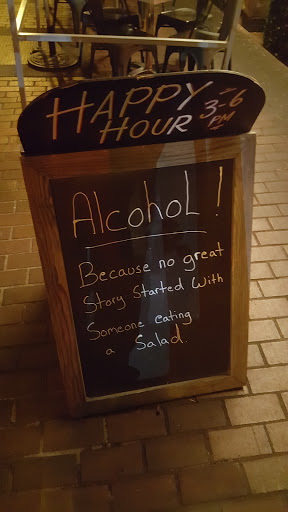 HAPPY 3-6
HOUR PM
AlcohoL!
Because no great
Story Started With
Someone eating
a Salad.